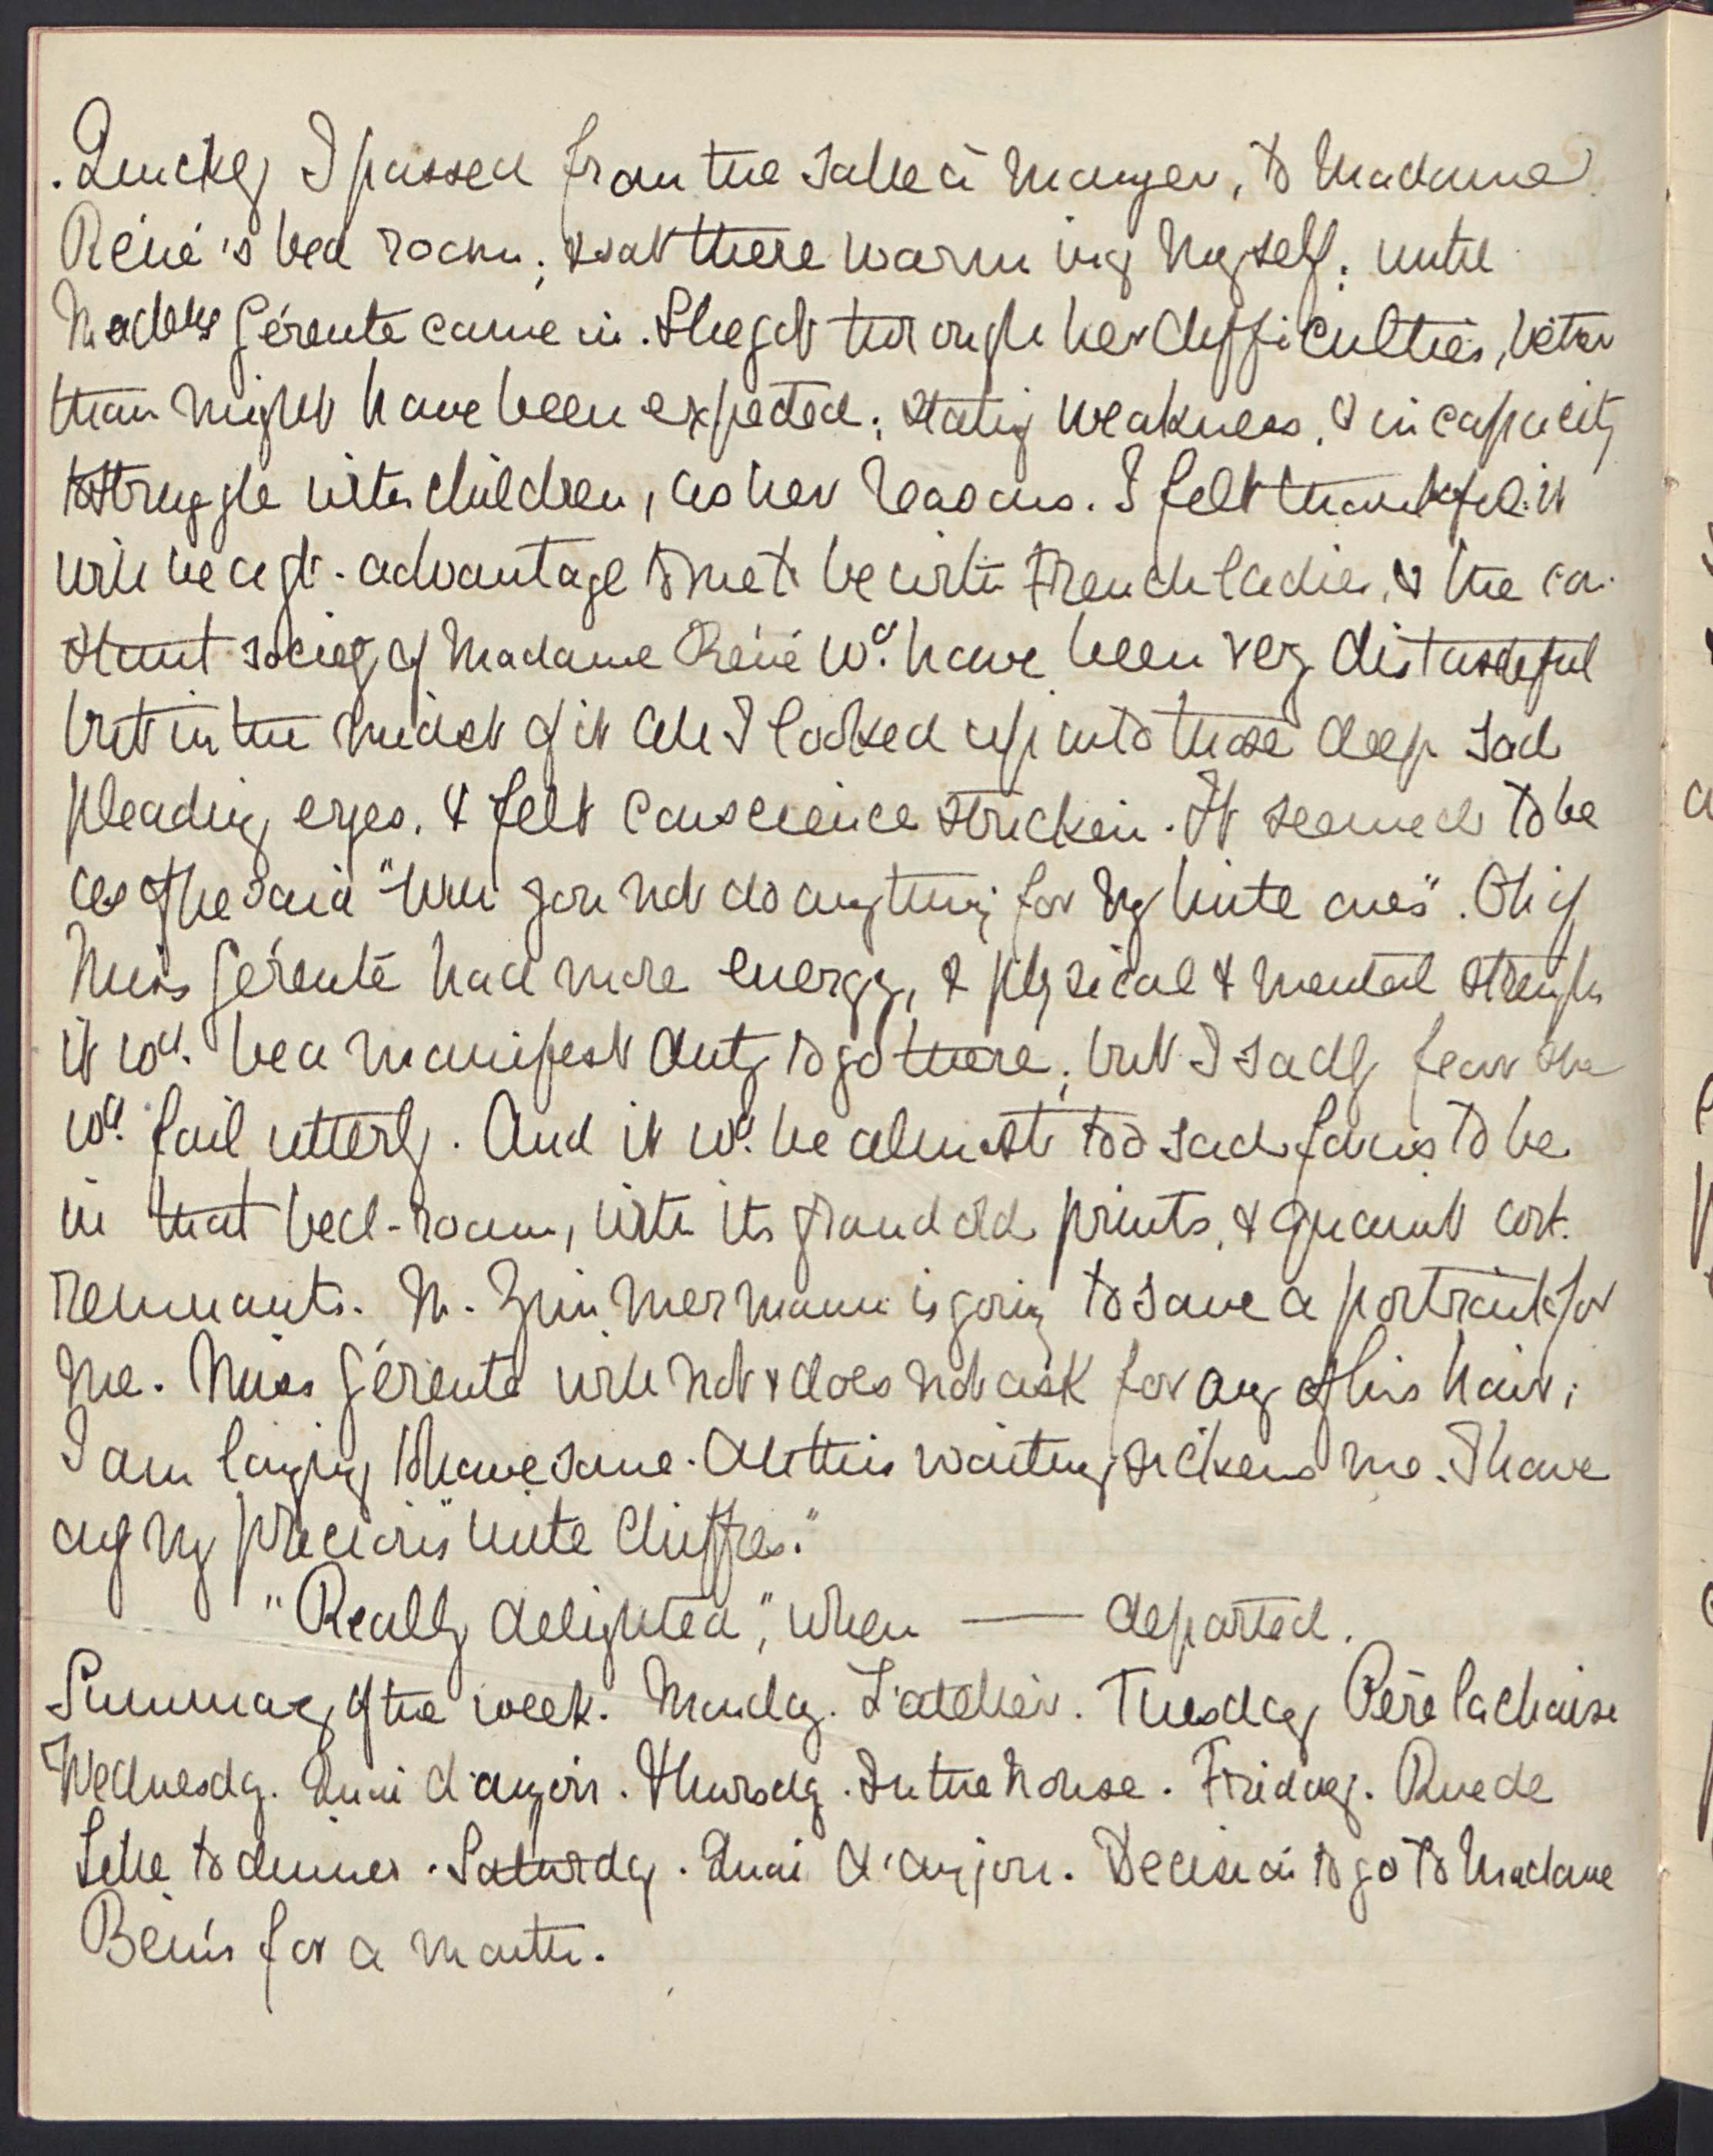 . Quickly I passed from the Salle à Manger, to Madame
Réné's bed room; & sat there warming myself: until
Madelle Gérente came in. She got through her difficulties, better
than might have been expected; stating weakness, & incapacity
to struggle with children, as her reasons. I felt thankful: it
will be a gt. advantage to me to be with French ladies, & the con-
stant society of Madame Réné wd. have been very distasteful
but in the midst of it all I looked up into those deep sad
pleading eyes, & felt conscience stricken. It seemed to be
as if he said "Will you not do anything for my little ones". Oh if
Miss Gérente had more energy, & physical & mental strength
it wd. be a manifest duty to go there; but I sadly fear she
wd. fail utterly. And it wd. be almost too sad for us to be
in that bed-room, with its grand old prints, & quaint
remnants. M. Zimmermann is going to save a portrait for
me. Miss Gérente will not & does not ask for any of his hair;
I am longing to have some. All this waiting sickens me. I have
only my precious "little chiffres."
"Really delighted", when — departed.
Summary of the week. Monday. L'atelier. Tuesday Père lachaise
Wednesday. Quai d'anjou. Thursday. In the house. Friday. Rue de
Lille to dinner. Saturday. Quai d'anjou. Decision to go to Madame
for a month.